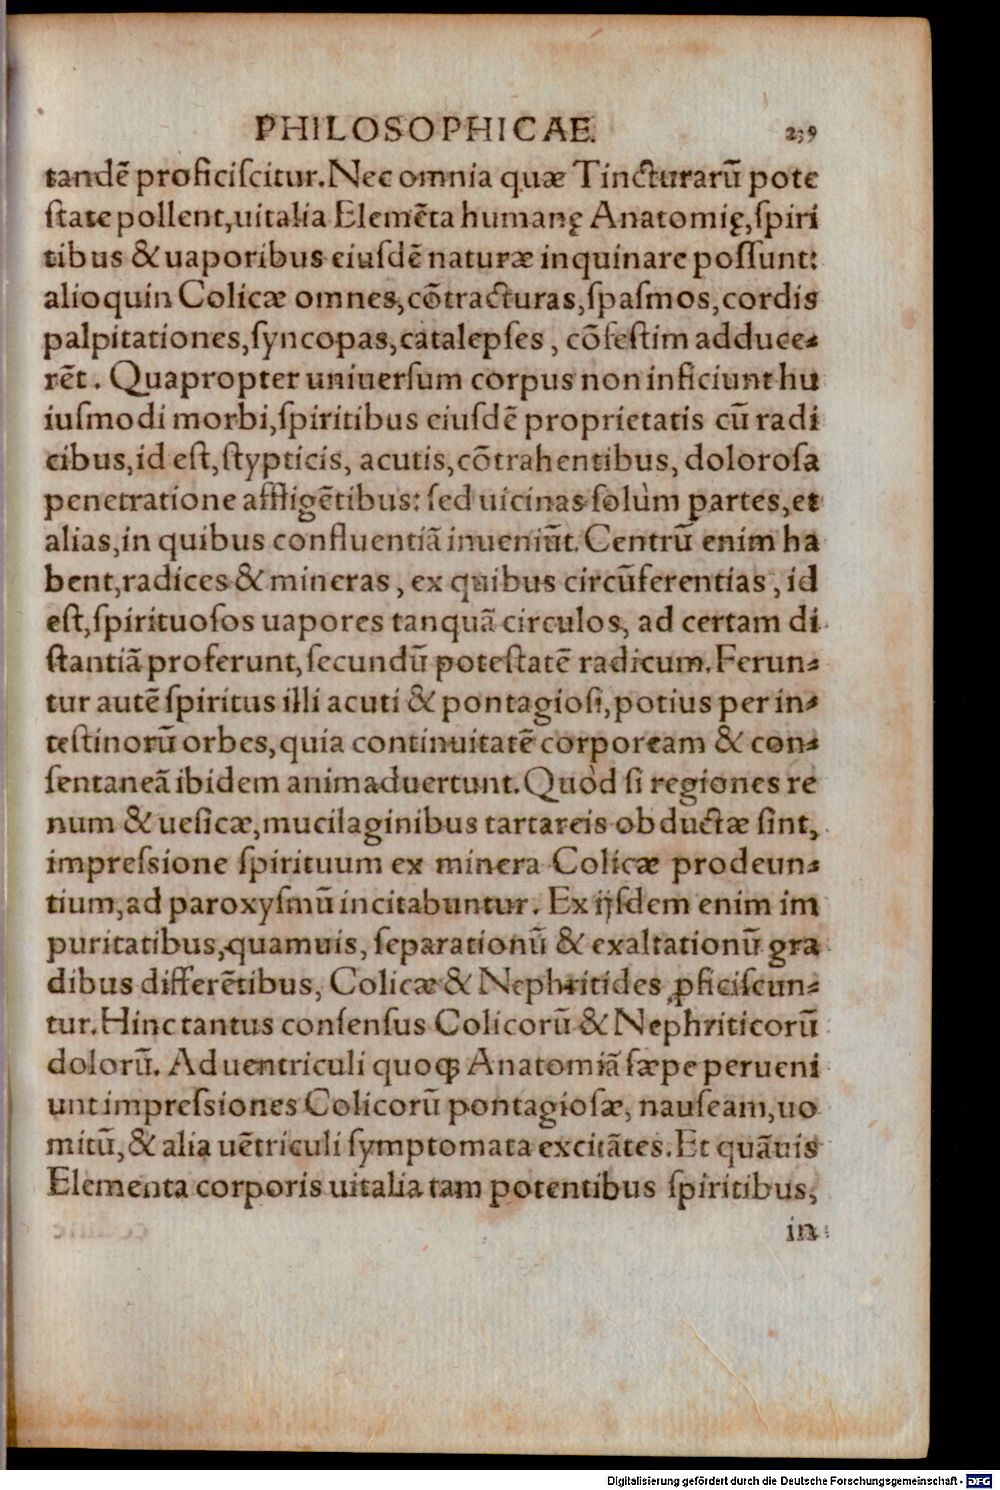 PHILOSOPHICAE. 239
tandẽ proficiſcitur. Nec omnia quæ Tincturarũ pote
ſtate pollent, uitalia Elemẽta humanę Anatomię, ſpiri
tibus & uaporibus eiuſdẽ naturæ inquinare poſſunt:
alioquin Colicæ omnes, cõtracturas, ſpaſmos, cordis
palpitationes, ſyncopas, catalepſes, cõfeſtim adduce-
rẽt. Quapropter uniuerſum corpus non inficiunt hu
iuſmodi morbi, ſpiritibus eiuſdẽ proprietatis cũ radi
cibus, id eſt, ſtypticis, acutis, cõtrahentibus, doloroſa
penetratione affligẽtibus: ſed uicinas ſolùm partes, et
alias, in quibus confluentiã inueniũt. Centrũ enim ha
bent, radices & mineras, ex quibus circũferentias, id
eſt, ſpirituoſos uapores tanquã circulos, ad certam di
ſtantiã proferunt, ſecundũ poteſtatẽ radicum. Ferun-
tur autẽ ſpiritus illi acuti & pontagioſi, potius per in-
teſtinorũ orbes, quia continuitatẽ corpoream & con-
ſentaneã ibidem animaduertunt. Quòd ſi regiones re
num & ueſicæ, mucilaginibus tartareis obductæ ſint,
impreſsione ſpirituum ex minera Colicæ prodeun-
tium, ad paroxyſmũ incitabuntur. Ex ijſdem enim im
puritatibus, quamuis, ſeparationũ & exaltationũ gra
dibus differẽtibus, Colicæ & Nephritides ꝓficiſcun-
tur. Hinc tantus conſenſus Colicorũ & Nephriticorũ
dolorũ. Ad uentriculi quoꝗ Anatomiã ſæpe perueni
unt impreſsiones Colicorũ pontagioſæ, nauſeam, uo
mitũ, & alia uẽtriculi ſymptomata excitãtes. Et quãuis
Elementa corporis uitalia tam potentibus ſpiritibus,
in
Digitalisierung gefördert durch die Deutsche Forschungsgemeinschaft - DFG